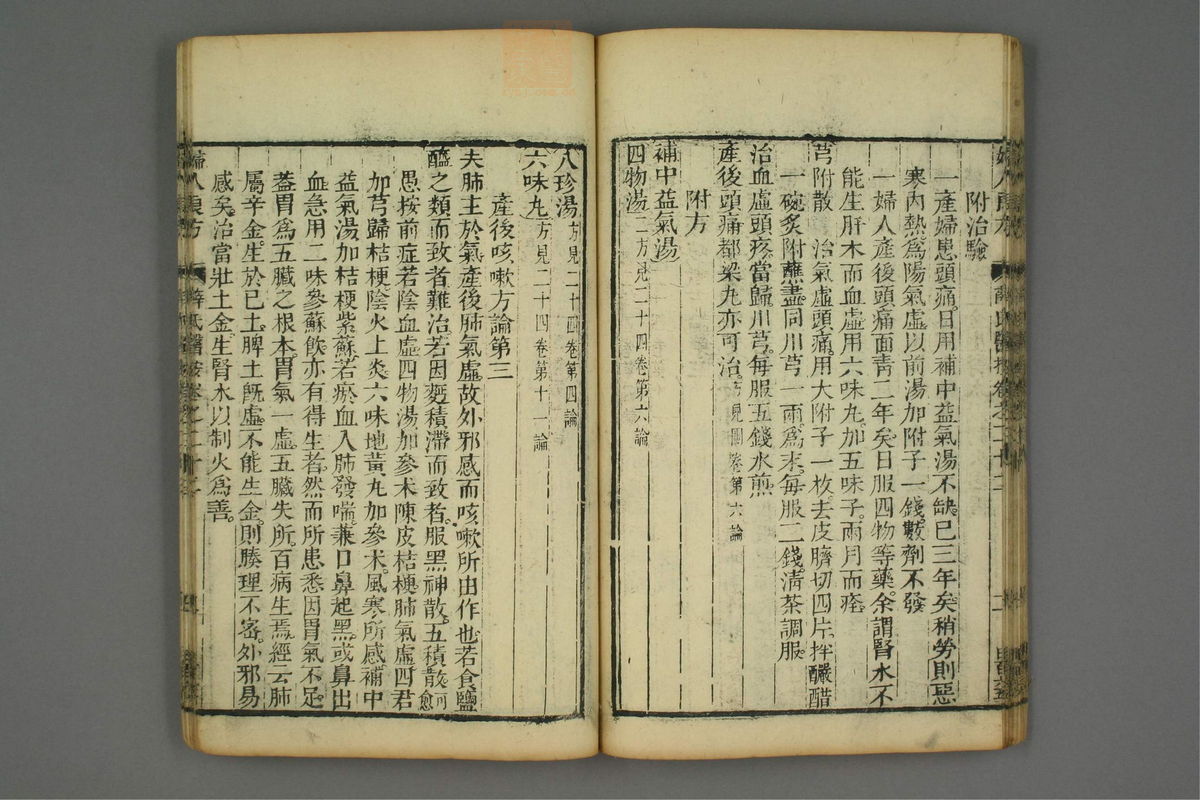 附治驗
一產婦患頭痛。日用補中益氣湯不缺。已三年矣。稍勞則惡
寒內熱。爲陽氣虛。以前湯加附子一錢。數劑不發
一婦人產後頭痛面靑二年矣。日服四物等藥。余謂腎水不
能生肝木而血虛。用六味丸加五味子。兩月而痊
芎附散 治氣虛頭痛。用大附子一枚。去皮臍切四片。拌釅醋
一碗。炙附蘸盡。同川芎一兩爲末。每服二錢。淸茶調服。
治血虛頭疼。當歸川芎。每服五錢水煎
產後頭痛。都梁丸亦可治。方見四卷第六論
附方
補中益氣湯
四物湯二方見二十四卷第六論
八珍湯方見二十四卷第四論
六味丸方見二十四卷第十一論
產後咳嗽方論第三
夫肺主於氣。產後肺氣虛。故外邪感而咳嗽所由作也。若食鹽
醯之類而致者難治。若因麪積滯而致者。服黑神散。五積散可愈
愚按前症若陰血虛。四物湯加參朮陳皮桔梗。肺氣虛。四君
加芎歸桔梗。陰火上炎。六味地黃丸加參朮。風寒所感。補中
益氣湯加桔梗紫蘇。若瘀血入肺發喘。兼口鼻起黑。或鼻出
血。急用二味參蘇飲。亦有得生者。然而所患悉因胃氣不足。
葢胃爲五臟之根本。胃氣一虛。五臟失所。百病生焉。經云肺
屬辛金。生於己土。脾土旣虛。不能生金。則腠理不密。外邪易
感矣。治當壯土金。生腎水以制火爲善。
婦人良方 薛氏醫按卷之二十二